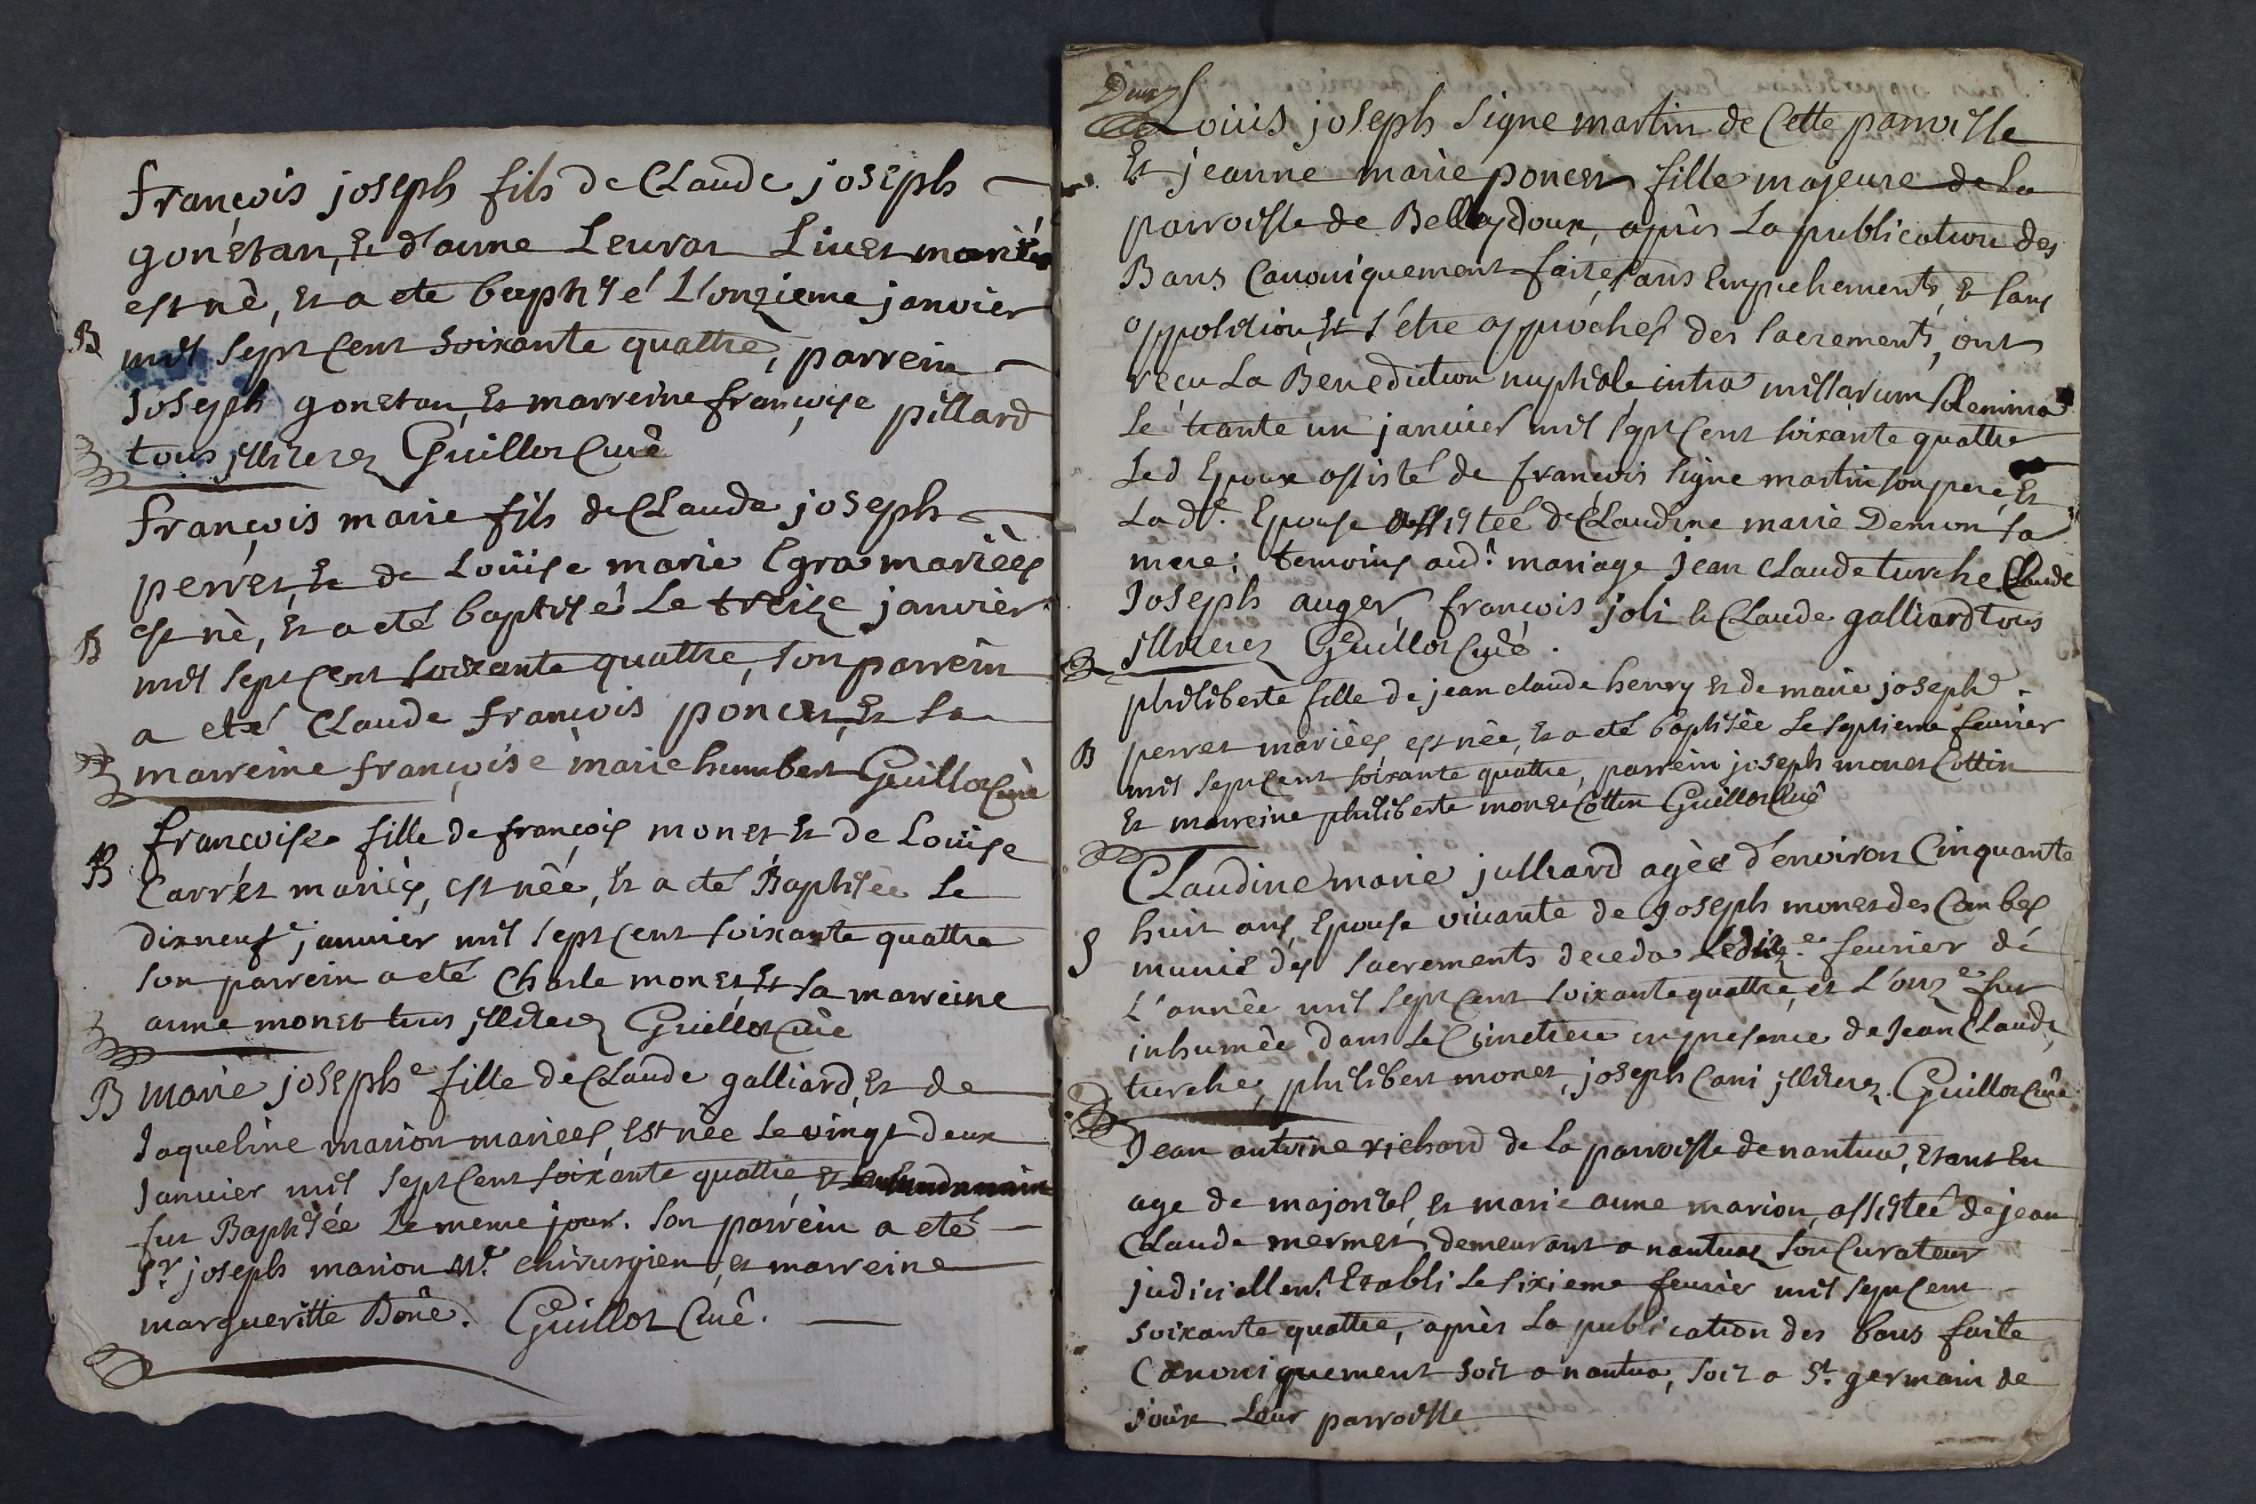 françois joseph fils de Claude joseph
gonétan, et d'anne Leurat Liuet mariés
est né, et a eté baptisé L'onzieme janvier
B
mil sept cent soixante quattre, parrein
Joseph gonetan, et marreine françoise pillard
tous illiterez Guillot Curé
françois marie fils de Claude joseph
perret, et de Loüise marie Egraz mariées
est né, et a eté baptisé Le treize janvier
B
mil sept cent soixante quattre, son parrein
a eté Claude françois poncet, et sa
marreine françoise marie humbert Guillot Curé
françoise fille de françois monet et de Loüise
B
Carrét mariés, est née, et a eté Baptisée Le
dixneufe janvier mil sept cent soixante quattre
son parrein a eté Charle monet, et sa marreine
anne monet tous illiterez Guillot Curé
B marie josephe fille de Claude galliard, et de
Jaqueline marion mariées, est née Le vingt deux
Janvier mil sept cent soixante quattre, et
fut Baptisée Le meme jour. son parrein a eté
Sr joseph marion Mre chirurgien, et marreine
margueritte Boüe. Guillot Curé.
Loüis joseph signe martin de Cette parroisse
Et jeanne marie poncet fille majeure de la
parroisse de Belleydoux, après La publication des
Bans Canoniquement faite, sans Empechements, et sans
opposition, et s'étre approchés des sacrements, ont
reçu La Benediction nuptiale intra missarum solemnia
Le trante un janvier mil sept cent soixante quattre
Led Epoux assisté de françois signe martin son pere, et
Lade. Epouse assistée de Claudine marie Demon sa
mere: temoins audt mariage Jean Claude turche Claude
Joseph auger, françois joli et Claude galliard tous
illiterez Guillot Curé.
philiberte fille de jean claude henry et de marie josephe
B perret mariées est née, et a eté baptisée Le septieme fevrier
mil sept cent soixante quattre, parrein joseph monet Cottin
et marreine philiberte monet Cottin Guillot Curé
Claudine marie julliard agée d'environ Cinquante
huit ans, Epouse vivante de joseph monet des Combes
S munie des sacrements deceda Le dixe fevrier de
L'année mil sept cent soixante quattre, et L'onze fut
inhumée dans Le Cimetiere en presence de Jean Claude
turche, philibert monet, joseph Cani illiterez. Guillot Curé
Jean antoine richard de La parroisse de nantua, etant en
age de majorité, et marie anne marion, assistée de jean
Claude mermet demeurant a nantua son Curateur
judiciellemt Etabli Le sixieme fevrier mil sept cent
soixante quattre, après La publication des bans faite
Canoniquement soit a nantua, soit a St. germain de
joux Leur parroisse